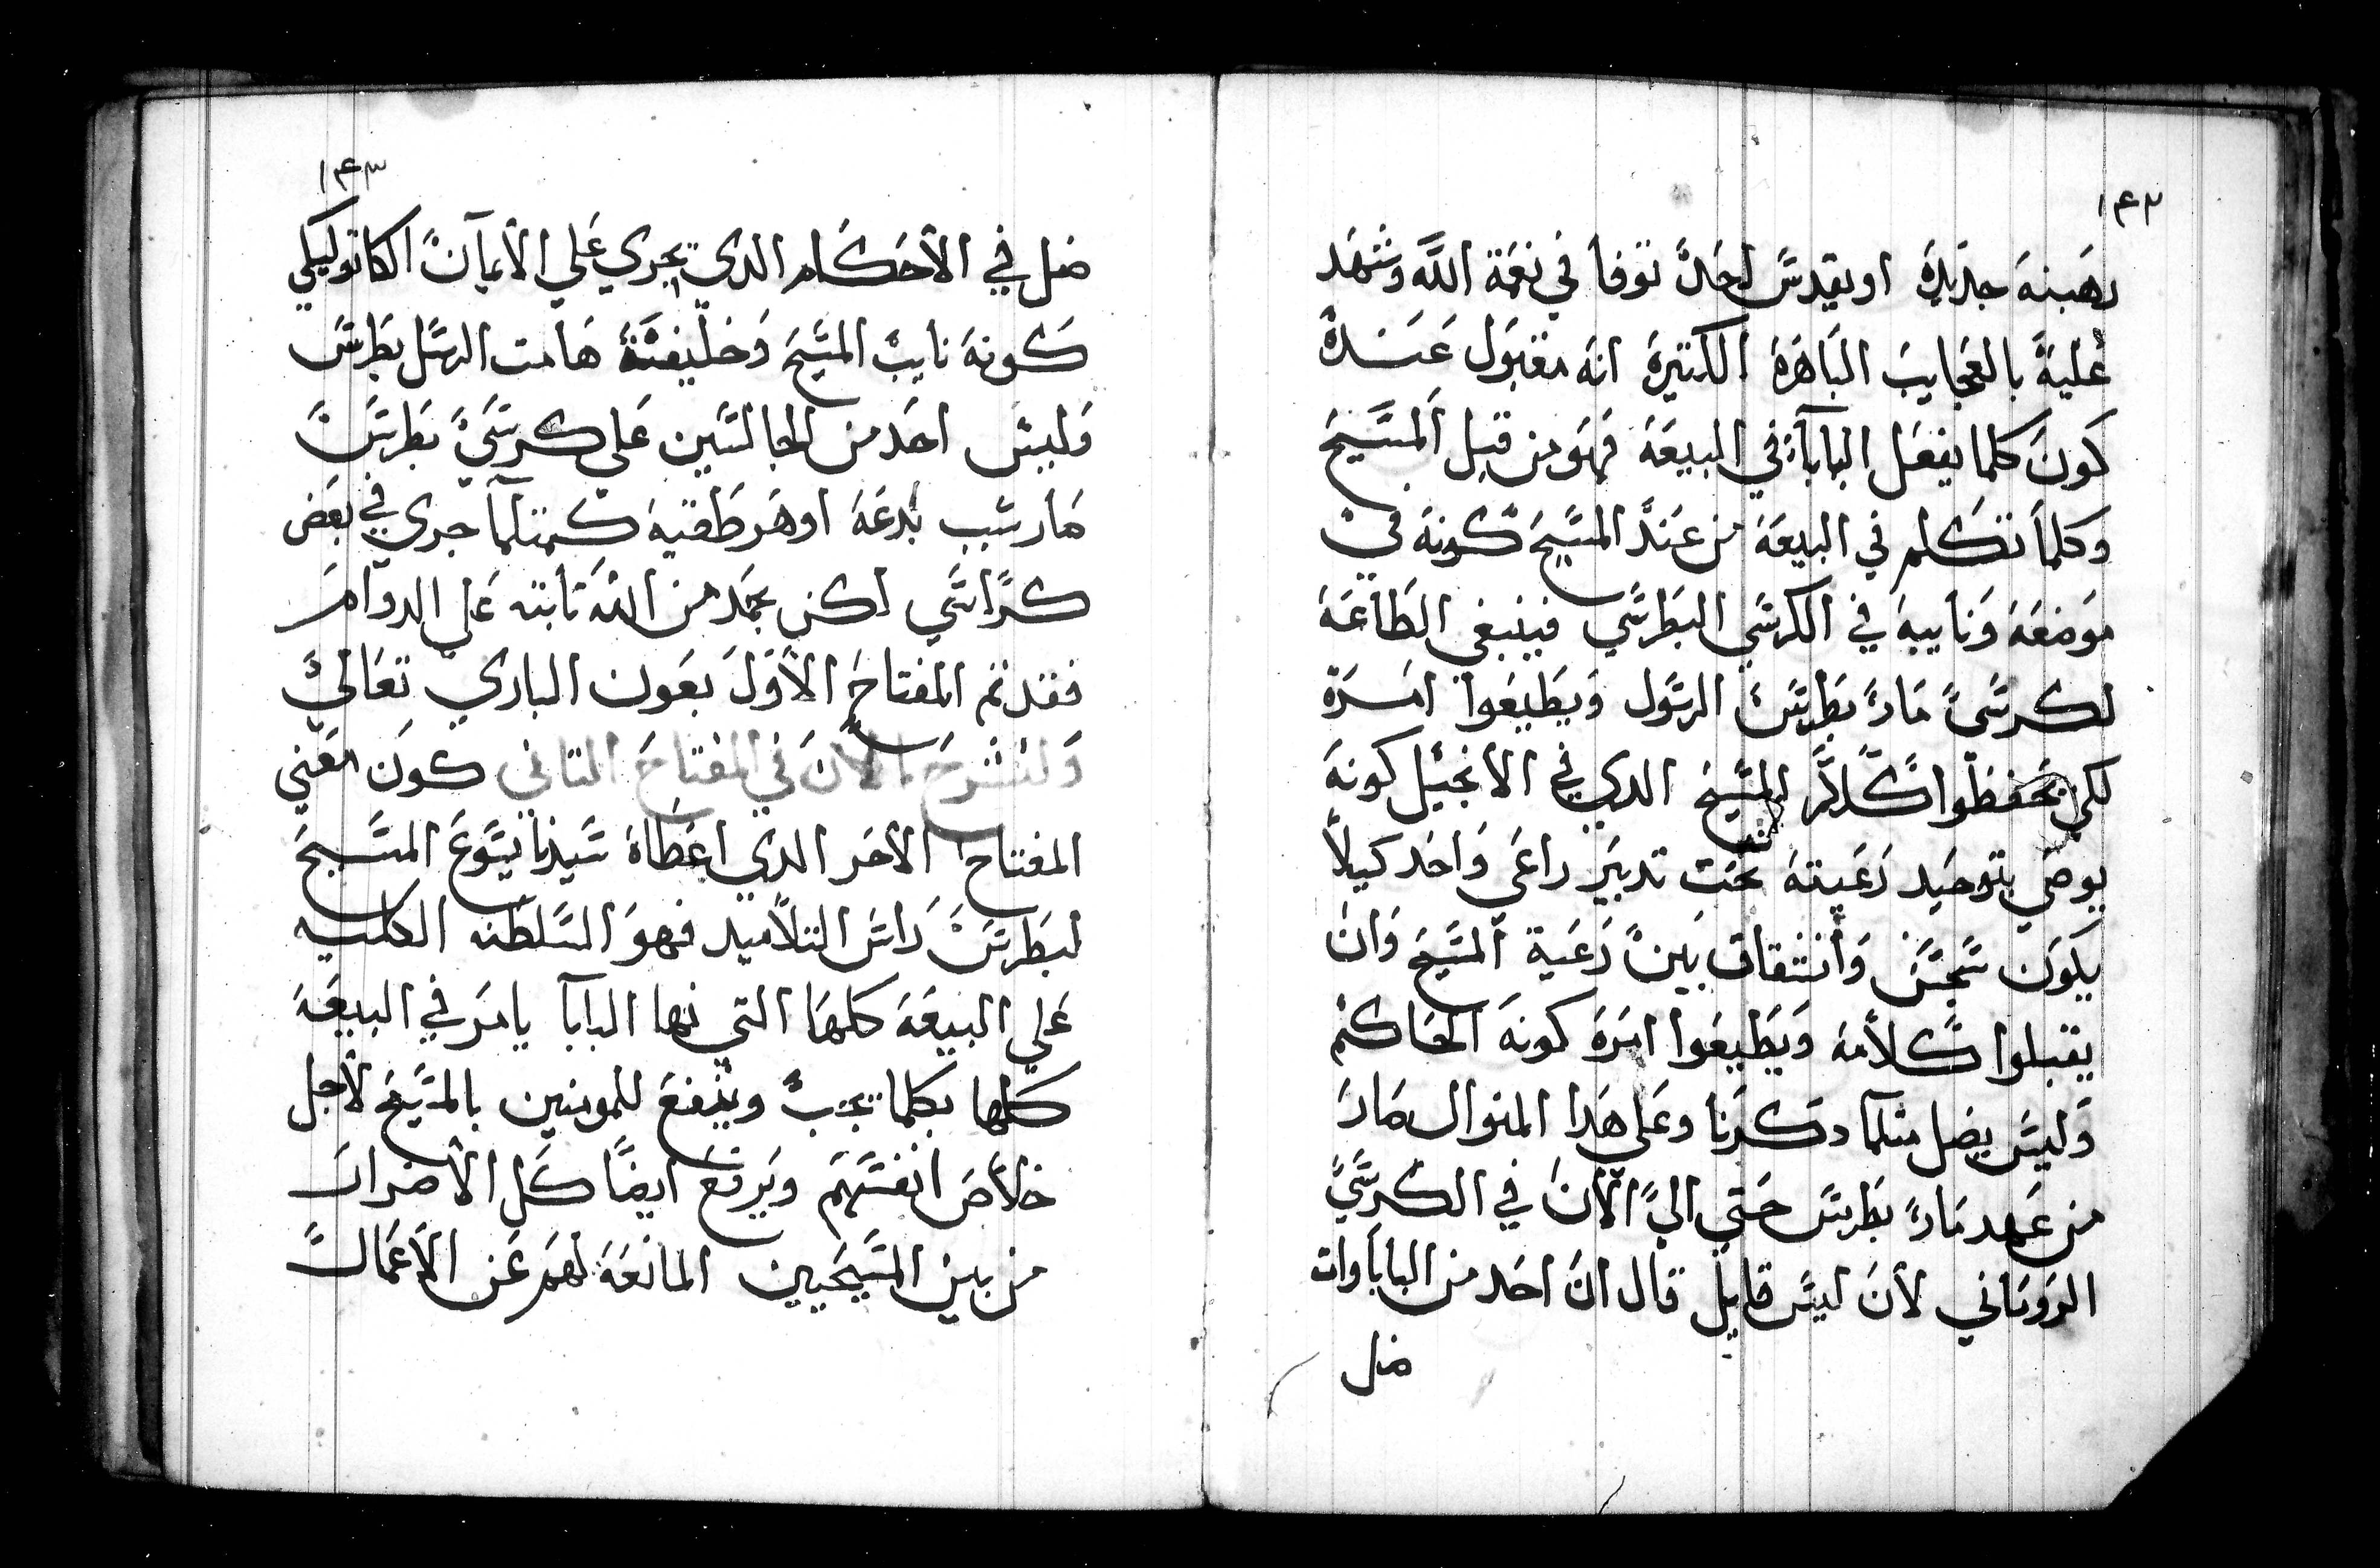 ١٤٢
رهبنه جديدة او يقدس احد توفا في نعمة الله وشهد
عليه بالعجايب الباهرة الكتيرة انه مقبول عنده
كون كلما يفعل البابا في البيعه فهو من قبل المسيح
وكلما تتكلم في البيعة من عند المسيح كونه في
موضعه ونايبه في الكرسي البطرسي فينبغي الطاعه
لكرسي مار بطرس الرسول ويطيعوا امره
لكي يحفظوا كلام المسيح الدي في الانجيل كونه
يوصي بتوحيد رعيته تحت تدبير راعي واحد كيلا
يكون سجس وانشقاق بين رعية المسيح وان
يقبلوا كلامه ويطيعوا امره كونه الحاكم
وليس يضل متلما دكرنا وعلي هدا المنوال صار
من عهد مار بطرس حتي الي الان في الكرسي
الروماني لان ليس قايل قال ان احد من الباباوات
ضل
١٤٣
ضل في الاحكام الدي تجري علي الايمان الكاتوليكي
كونه نايب المسيح وخليفة هامت الرسل بطرس
وليس احد من الجالسين علي كرسي بطرس
صار سبب بدعه او هرطقيه كمتلما جري في بعض
كراسي لكن بحمد من الله تابته علي الدوام
فقد تم المفتاح الاول بعون الباري تعالي
ولنشرح الان في المفتاح التاني كون معني
المفتاح الاخر الدي اعطاه سيدنا يسوع المسيح
لبطرس راس التلاميد فهو السلطنه الكليه
علي البيعه كلها التي بها البابا يامر في البيعه
كلها بكلما يجب وينفع للمومنين بالمسيح لاجل
خلاص انفسهم ويرفع ايضا كل الاضرار
من بين المسيحيين المانعه لهم عن الاعمال